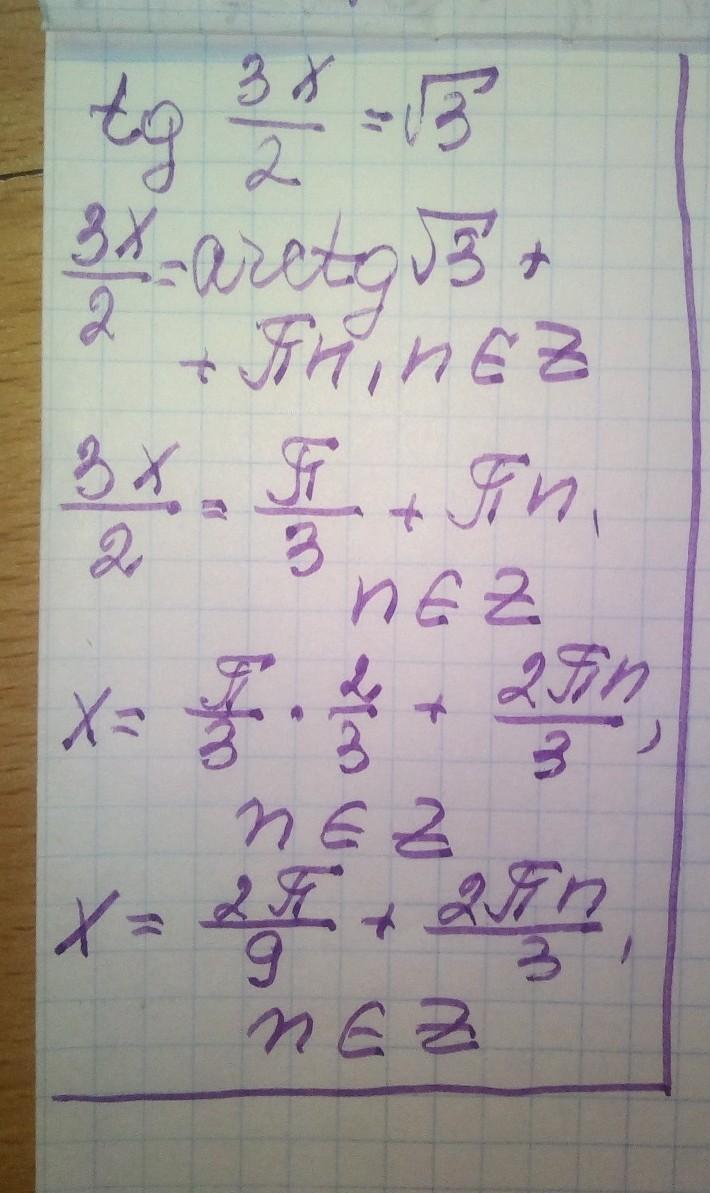 tg 3x/2 = √3
3x/2 = arctg √3 +
+ πn, n ∈ Z
3x/2 = π/3 + πn,
n ∈ Z
x = π/3 · 2/3 + 2πn/3,
n ∈ Z
x = 2π/9 + 2πn/3,
n ∈ Z